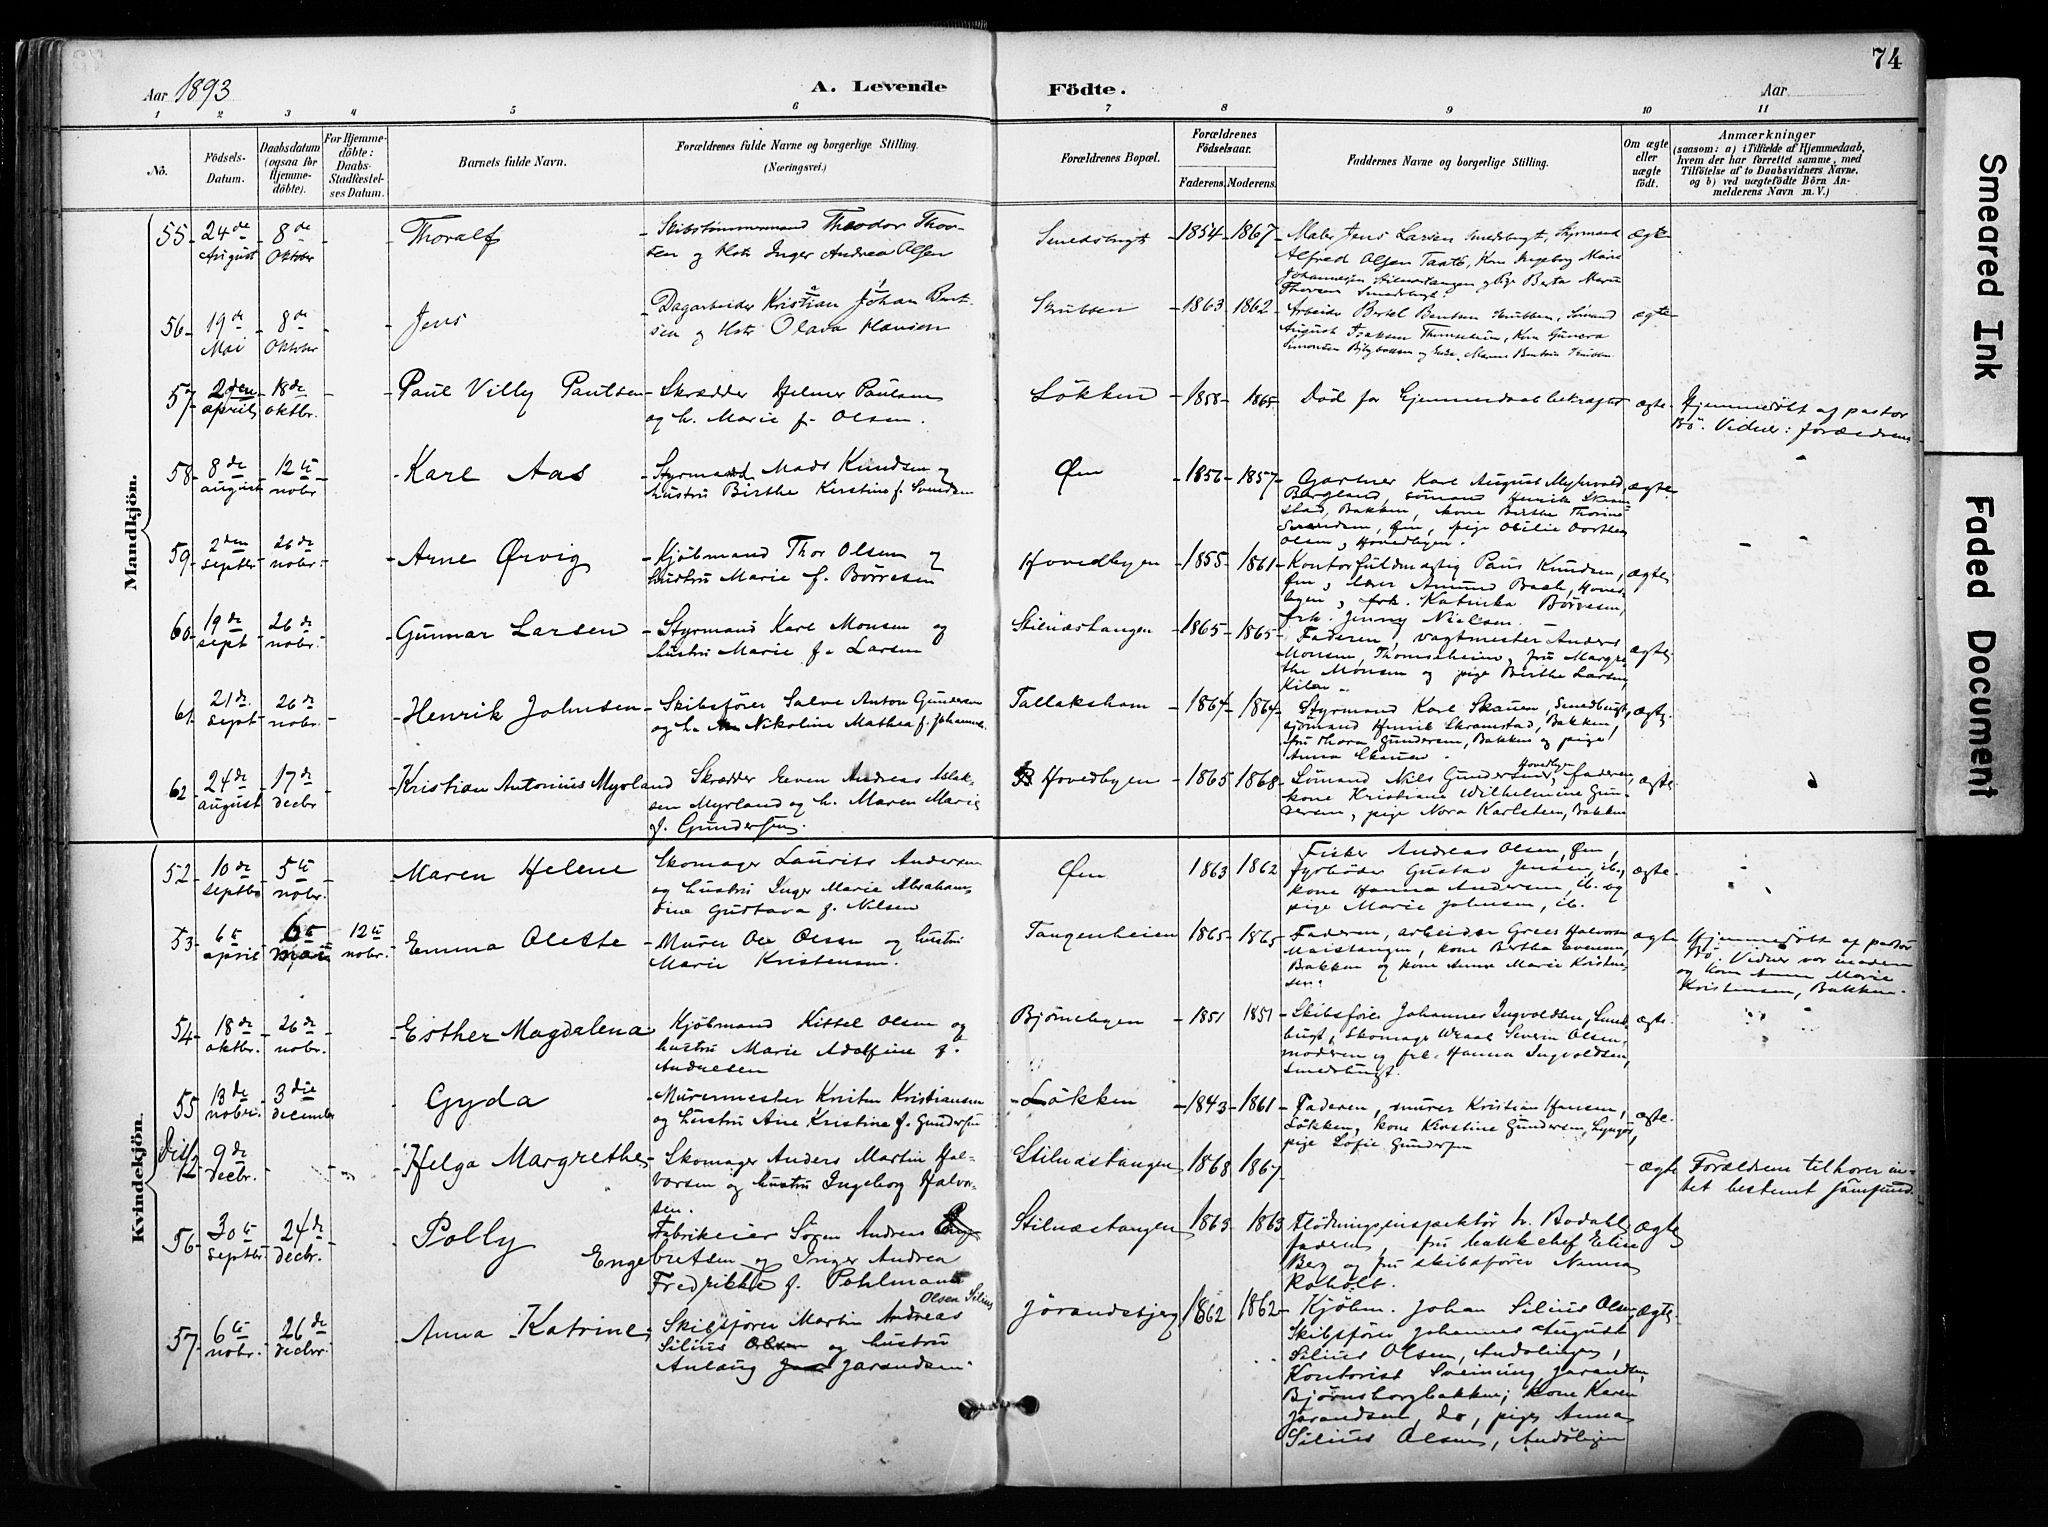 74
Aar 1893
A. Levende Födte.
Aar
1 2 3 4 5 6 7 8 9 10 11
No.
Födsels-Datum.
Daabsdatum (ogsaa for hjemme-döbte).
For Hjemme-döbte: Daabs-Stadfæstel-ses Datum.
Barnets fulde Navn.
Forældrenes fulde Navne og borgerlige Stilling. (Næringsvei.)
Forældrenes Bopæl.
Forældrenes Födselsaar.
Faderens. Moderens.
Faddernes Navne og borgerlige Stilling.
Om ægte eller uægte födt.
Anmærkninger
(saasom: a) i Tilfælde af Hjemmedaab, hvem der har forrettet samme, med Tilföielse af to Daabsvidners Navne, og b) ved uægtefödte Börn An-melderens Navn m. V.)
Mandkjön.
55 24de August 8de Oktober Thoralf
Skibstömmermand Theodor Thor-
sen og Hstr Inger Andrea Olsen
Smedsbugt 1854 1867
Maler Jens Larsen Smedsbugt, Styrmand
Alfred Olsen Taatö, Kone Ingeborg Marie
Johannesen Stilnæstangen og Pige Berta Maria
Thorsen Smedsbugt.
ægte
56 19de Mai 8de Oktober Jens
Dagarbeider Kristian Johan Bent-
sen og Hstr Olava Hansen
Skrubben 1863 1862
Arbeider Bertel Bentsen Skrubben, Sömand
August Isaksen Thomseheien, Kone Gunvora
Simonsen
ægte
57 2den april 18de oktbr. Paul Villy Paulsen
Skrædder Helmer Paulsen
og h. Marie f. Olsen.
Lökken 1858 1865
Död før Hjemmedaab bekræftet
ægte
Hjemmedöbt af pastor
Bö. Vidner: forældrene
58 8de august 12te nobr. Karl Aas
Styrmand Mads Knudsen og
hustru Birthe Kirstine f. Svendsen
Øen 1856 1857
Gartner Karl August Myhrvold,
Bergland, sömand Henrik Skram-
stad, Bakken, kone Birthe Thorine
Svendsen, Øen, pige Otilie Dorthea
Olsen, Hovedbyen.
ægte
59 2den septbr 26de nobr. Arne Ørvig
Kjöbmand Thor Olsen og
hustru Marie f. Börresen
Hovedbyen 1855 1861
Kontorfuldmægtig Paus Knudsen,
Øen, lærer Amund Bach, Hoved-
byen, frk. Katinka Börresen,
frk. Jenny Nielsen.
ægte
60 19de sept 26de nobr. Gunnar Larsen
Styrmand Karl Monsen og
hustru Marie f. Larsen
Stilnæstangen 1865 1865
Faderen, vagtmester Anders
Monsen, Thomseheien, fru Margre-
the Monsen og pige Birthe Larsen,
Kilen.
ægte
61 21de sept 26de nobr. Henrik Johnsen
Skibsförer Salve Anton Gundersen
og h. Nikoline Mathea f. Johannes
Tallakshavn 1864 1864
Styrmand Karl Skauen, Smedbugt,
sjömand Henrik Skramstad, Bakken,
fru Thora Gundersen, Bakken og pige
Anna Skauen.
ægte
62 24de august 17de decbr Kristian Antonius Myrland
Skrædder Even Andreas Aslak-
sen Myrland og h. Maren Marie
f. Gundersen.
Hovedbyen 1865 1868
Sömand Nils Gundersen, Hovedbyen, faderen,
kone Kristiane Wilhelmine Gun-
dersen, pige Nora Karlsteen, Bakken
ægte
Kvindekjön.
52 10de septbr 5te nobr. Maren Helene
Skomager Laurits Andersen
og hustru Inger Marie Abraham-
dine Gustava f. Nilsen
Øen 1863 1862
Fisker Andreas Olsen, Øen,
fyrböder Gustav Jensen, ib.,
kone Hanna Andersen, ib. og
pige Marie Johnsen, ib.
ægte
53 6te april 6te mai 12te nobr. Emma Olette
Murer Ole Olsen og hustru
Marie Kristensen.
Tangenheien 1865 1865
Faderen, arbeider Grees Halvorsen
Maistangen, kone Bertha Evensen,
Bakken og kone Anna Marie Kristen-
sen.
ægte
Hjemmedöbt af pastor
Bö. Vidner var moderen
og kone Anna Marie
Kristensen, Bakken.
54 18de oktbr. 26de nobr. Esther Magdalena
Kjöbmand Kittel Olsen og
hustru Marie Adolfine f.
Andresen
Bjørnebyen 1851 1851
Skibsförer Johannes Ingvoldsen, Smed-
bugt, Skomager Severin Olsen,
moderen og frk. Hanna Ingvoldsen,
Smedbugt.
ægte
55 13de nobr. 3die december Gyda
Murermester Kristen Kristiansen
og hustru Ane Kristine f. Gundersen
Løkken 1843 1861
Faderen, murer Kristian Hansen,
Løkken, kone Kirstine Gundersen, Lyngør,
pige Sofie Gundersen
ægte
Diss. 12 9de decbr. Helga Margrethe
Skomager Anders Martin Hal-
vorsen og hustru Ingeborg Halvor-
sen.
Stilnæstangen 1868 1867
ægte
Forældrene tilhører in-
tet bestemt samfund.
56 30te septbr 24de decbr. Polly
Fabrikeier Sören Andreas
Engebretsen og Inger Andrea
Fredrikke f. Pohlmann
Stilnæstangen 1863 1863
Flödningsinspektör h. Bodahl,
faderen, fru bankchef Elise
Berg og fru skibsförer Nanna
Roholt.
ægte
57 6te nobr. 26de decbr. Anna Katrine
Olsen Silius
Skibsförer Martin Andreas
Silius Olsen og hustru
Anlaug Jarandsen.
Jørandsbjerg 1862 1862
Kjöbm. Johan Silius Olsen,
Skibsförer Johannes August
Silius Olsen, Andölingen,
Kontorist Sveinung Jarandsen,
Bjørnsborgbakken; kone Karen
Jarandsen, do, pige Anna
Silius Olsen, Andölingen
ægte
Smeared Ink
Faded Document